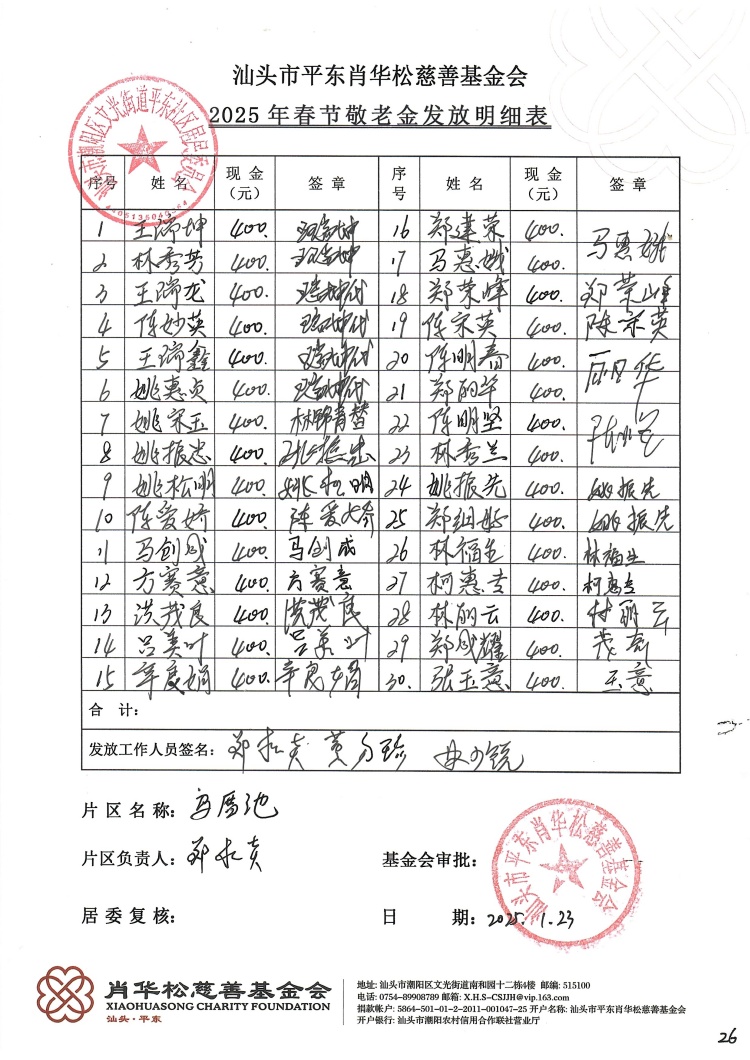 汕头市平东肖华松慈善基金会
2025年春节敬老金发放明细表
汕头市潮阳区文光街道平东社区居民委员会
序号 姓名 现金(元) 签章 序号 姓名 现金(元) 签章
1 王瑞坤 400. 王瑞坤 16 郑建荣 400. 马惠娥
2 林秀芳 400. 王瑞坤 17 马惠娥 400.
3 王瑞龙 400. 瑞坤代 18 郑荣峰 400. 郑荣峰
4 陈妙英 400. 瑞坤代 19 陈宋英 400. 陈宋英
5 王瑞鑫 400. 瑞坤代 20 陈明春 400.
6 姚惠贞 400. 瑞坤代 21 郑丽华 400. 丽华
7 姚宋玉 400. 22 陈明坚 400.
8 姚振忠 400. 姚振忠 23 林秀兰 400.
9 姚松明 400. 姚松明 24 姚振先 400. 姚振先
10 陈爱娇 400. 陈爱娇 25 400. 姚振先
11 马创成 400. 马创成 26 林福生 400. 林福生
12 方赛意 400. 方赛意 27 柯惠专 400. 柯惠专
13 洪茂良 400. 洪茂良 28 林丽云 400. 林丽云
14 吕美叶 400. 吕美叶 29 郑成耀 400.
15 400. 30. 张玉意 400. 玉意
合计:
发放工作人员签名:
片区名称:
片区负责人:
基金会审批:
汕头市平东肖华松慈善基金会
居委复核:
日期: 2025.1.23
肖华松慈善基金会
XIAOHUASONG CHARITY FOUNDATION
汕头·平东
地址: 汕头市潮阳区文光街道南和园十二栋4楼 邮编: 515100
电话: 0754-89908789 邮箱: X.H.S-CSJJH@vip.163.com
捐款帐户: 5864-501-01-2-2011-001047-25 开户名称: 汕头市平东肖华松慈善基金会
开户银行: 汕头市潮阳农村信用合作联社营业厅
26